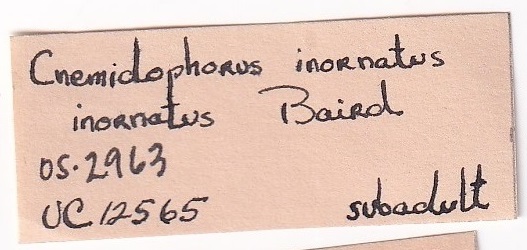 Cnemidophorus inornatus
inornatus Baird
OS-2963
UC 12565 subadult